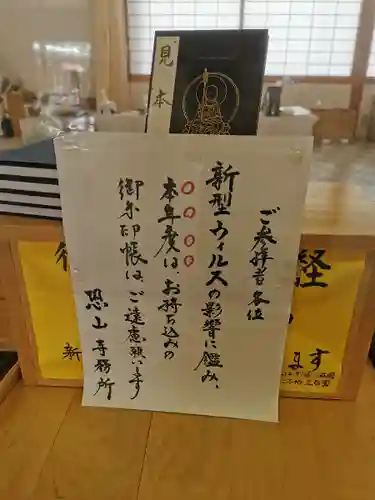 見本
ご参拝者各位
新型ウィルスの影響に鑑み、
本年度は、お持ち込みの
御朱印帳は、ご遠慮願います
恐山寺務所
経
ます
新